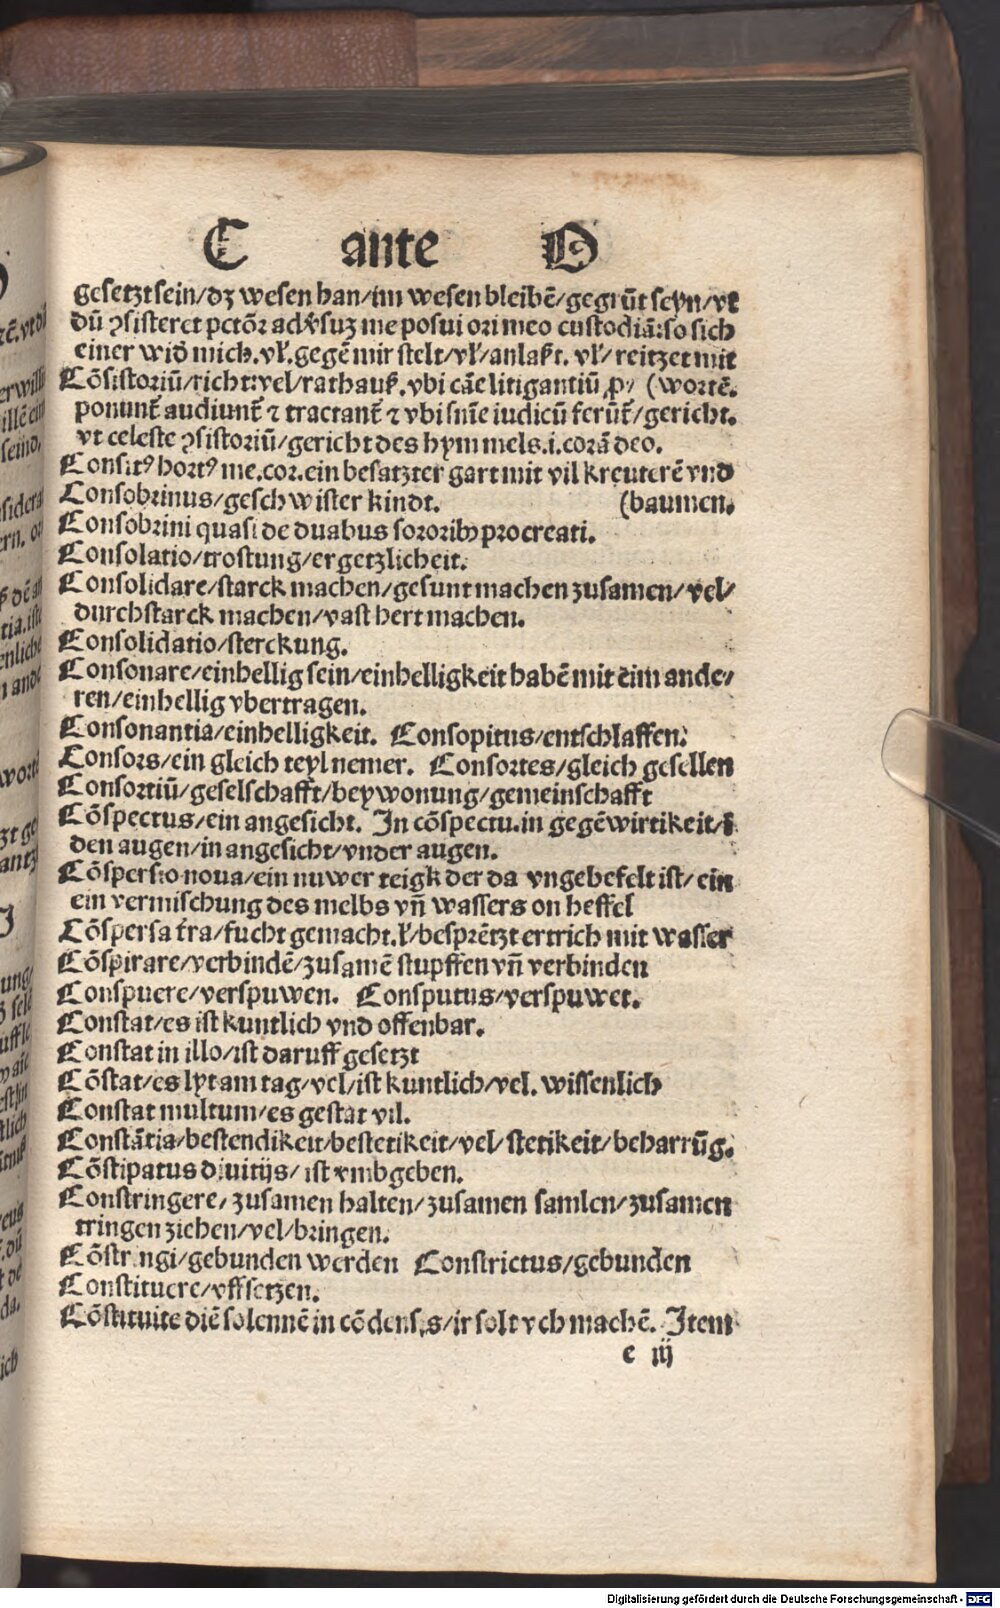 C ante D
gesetzt sein/dz wesen han/im wesen bleibē/gegrūt seyn/vt
dū ꝯsisteret pctōꝛ adv̄suz me posui ori meo custodiā:so sich
einer wid̄ mich.vł.gegē mir stelt/vł/anlaßt. vł/ reitzet mit
Cōsistoriū/richt:vel/rathauß.vbi cāe litigantiū ꝓ/ (wortē.
ponunt̄ audiunt̄ ⁊ tractant̄ ⁊ vbi sn̄ie iudicū ferūt̄/gericht.
vt celeste ꝯsistoriū/gericht des hymmels.i.corā deo.
Consitꝰ hortꝰ me.cor.ein besatzter gart mit vil kreuterē vnd
Consobrinus/geschwister kindt. (baumen.
Consobrini quasi de duabus sororibꝫ procreati.
Consolatio/trostung/ergetzlicheit.
Consolidare/starck machen/gesunt machen zusamen/vel/
durchstarck machen/vast hert machen.
Consolidatio/sterckung.
Consonare/einhellig sein/einhelligkeit habē mit eim ande/
ren/einhellig vbertragen.
Consonantia/einhelligkeit. Consopitus/entschlaffen.
Consors/ein gleich teyl nemer. Consortes/gleich gesellen
Consortiū/geselschafft/beywonung/gemeinschafft
Cōspectus/ein angesicht. In cōspectu.in gegēwirtikeit/ī
den augen/in angesicht/vnder augen.
Cōspersio noua/ein nuwer teigk der da vngebefelt ist/ein
ein vermischung des melbs vn̄ wassers on heffel
Cōspersa t̄ra/fucht gemacht.ł/besprētzt ertrich mit wasser
Cōspirare/verbindē/zusamē stupffen vn̄ verbinden
Conspuere/verspuwen. Consputus/verspuwet.
Constat/es ist kuntlich vnd offenbar.
Constat in illo/ist daruff gesetzt
Cōstat/es lyt am tag/vel/ist kuntlich/vel. wissenlich
Constat multum/es gestat vil.
Constātia/bestendikeit/bestetikeit/vel/stetikeit/beharrūg.
Cōstipatus diuitijs/ ist vmbgeben.
Constringere/zusamen halten/zusamen samlen/zusamen
tringen ziehen/vel/bringen.
Cōstringi/gebunden werden Constrictus/gebunden
Constituere/vffsetzen.
Cōstituite diē solennē in cōdensis/ir solt vch machē. Item
e iij
Digitalisierung gefördert durch die Deutsche Forschungsgemeinschaft - DFG